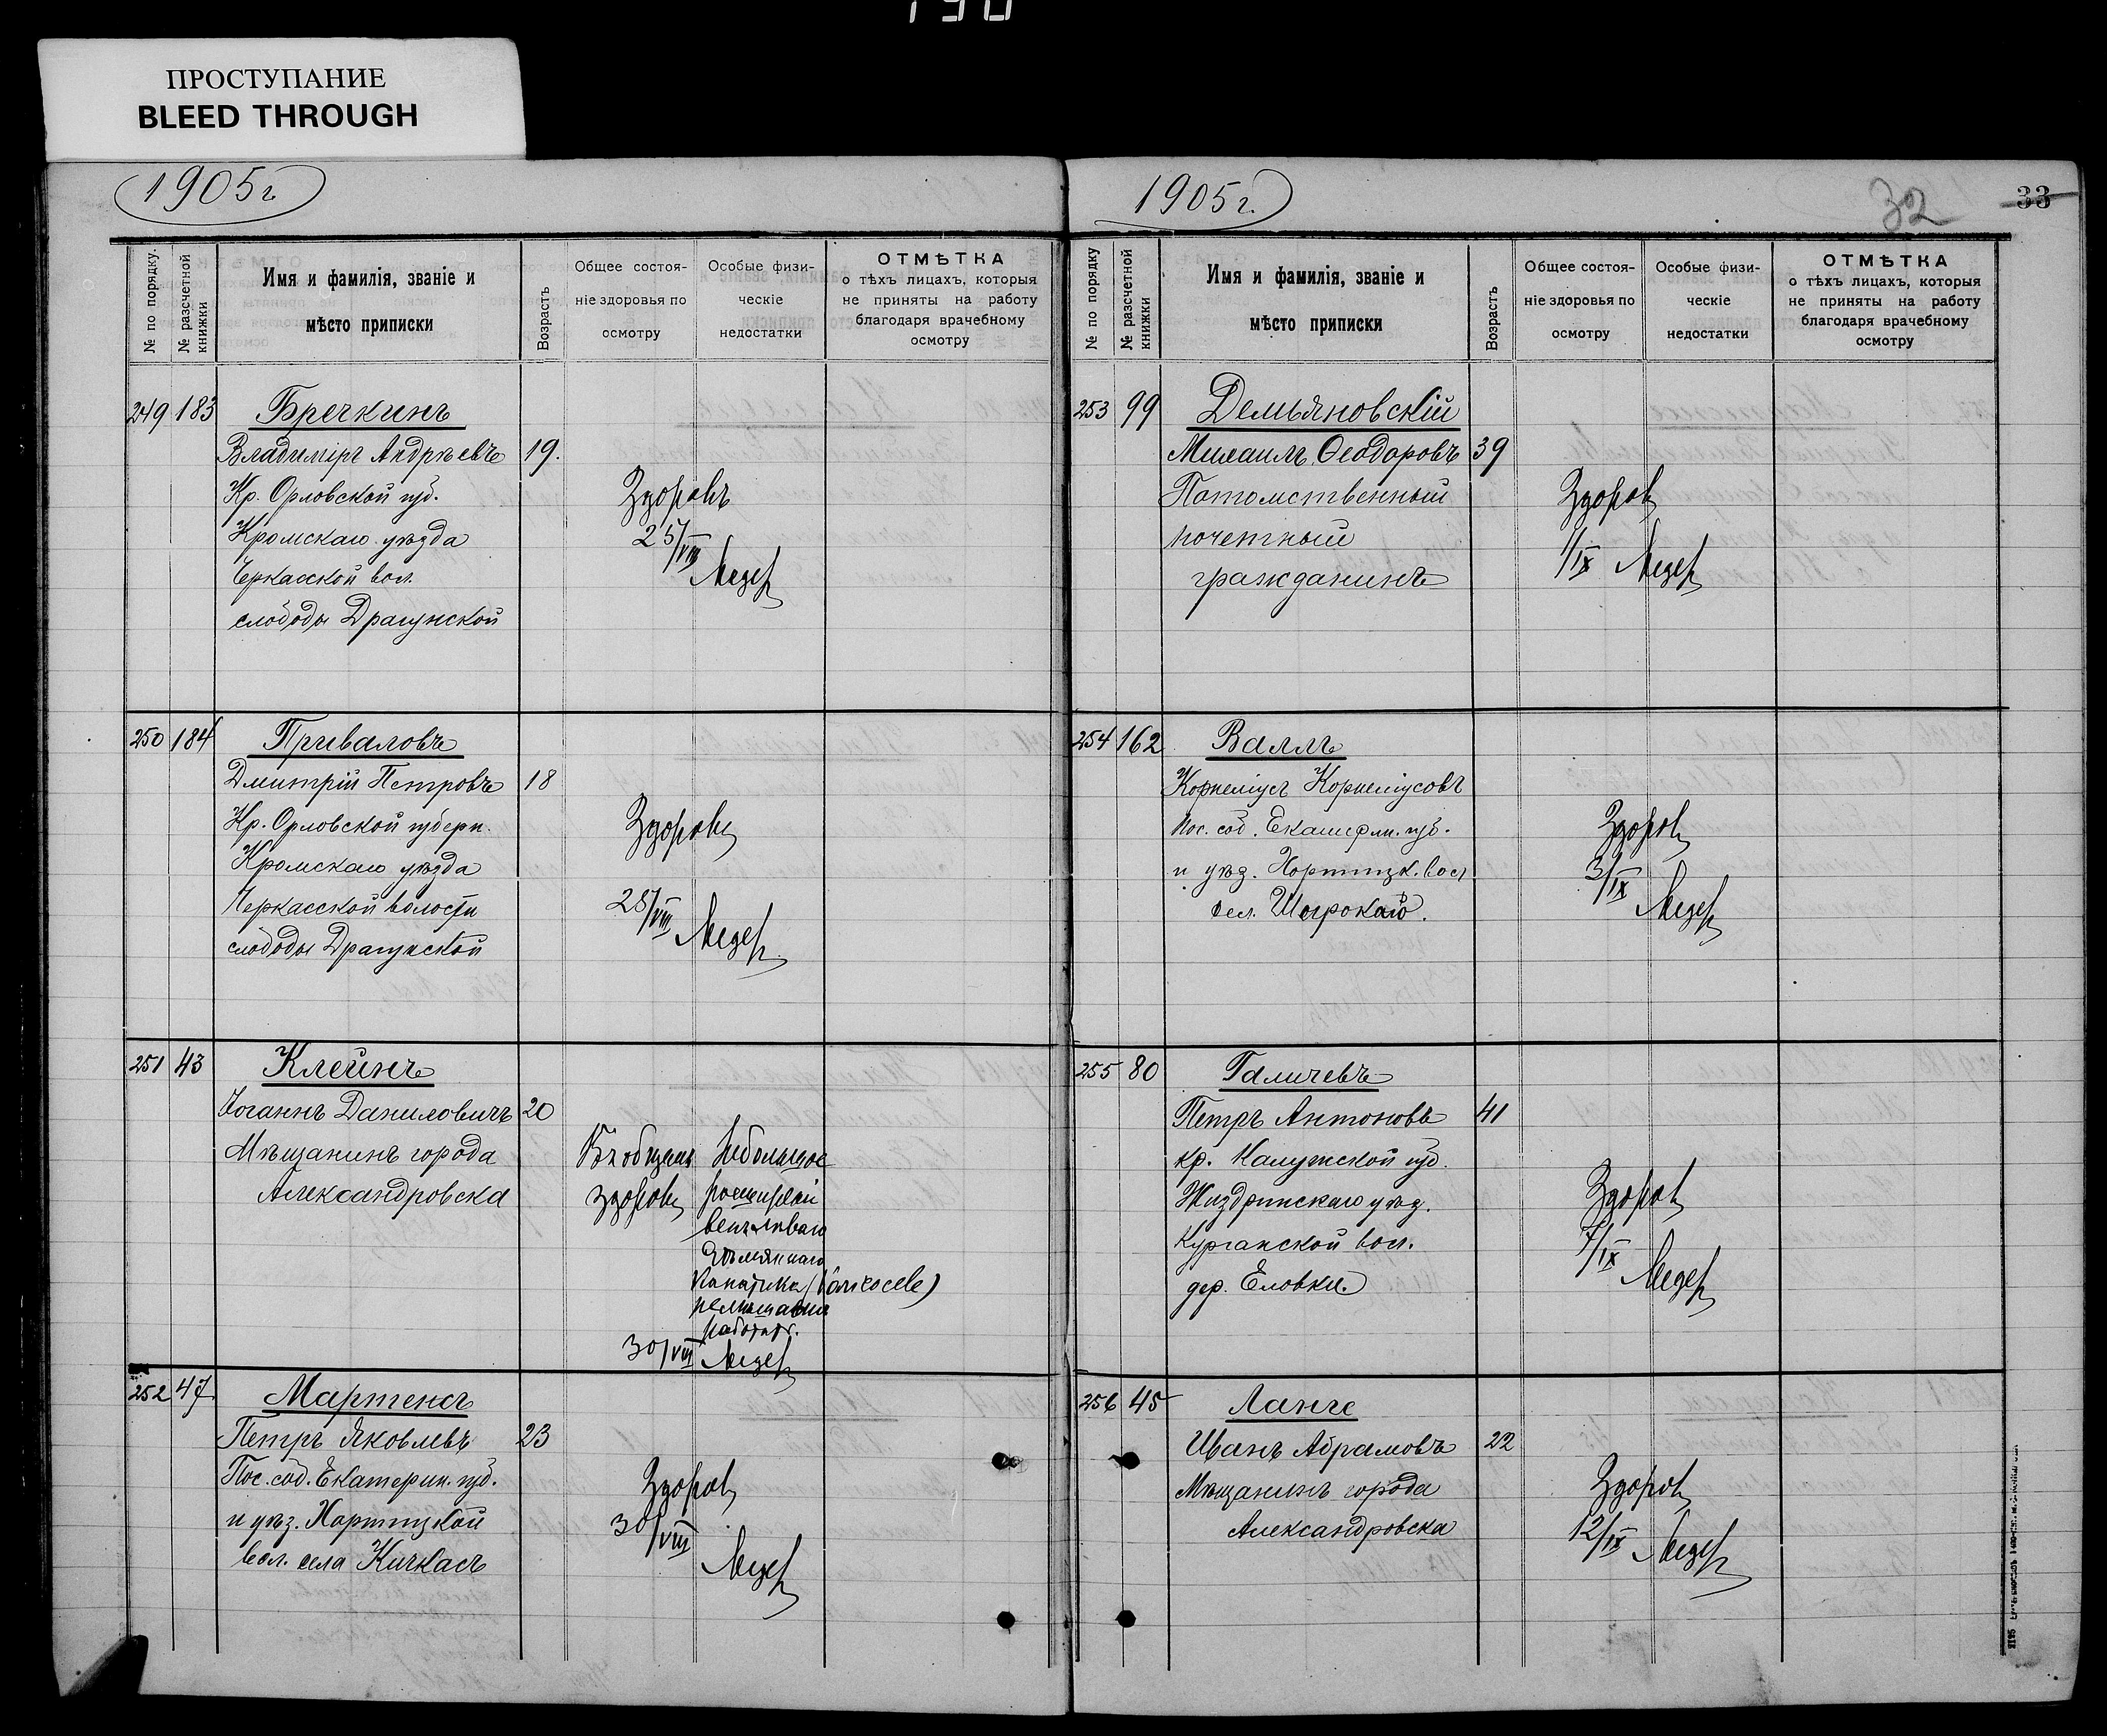 190
ПРОСТУПАНИЕ
BLEED THROUGH
1905г.
№ по порядку.
№ разсчетной книжки
Имя и фамилія, званіе и мѣсто приписки
Возрастъ
Общее состояніе здоровья по осмотру
Особые физическіе недостатки
ОТМѢТКА
о тѣхъ лицахъ, которыя
не приняты на работу
благодаря врачебному
осмотру
249 183 Бречкинъ
Владиміръ Андрѣевъ 19.
Кр. Орловской губ.
Здоровъ
Кромскаго уѣзда
25/VIII
Черкасской вол.
слободы Драгунской
250 184 Приваловъ
Дмитрій Петровъ 18
Кр. Орловской губерн.
Здоровъ
Кромскаго уѣзда
Черкасской волости
28/VIII
слободы Драгунской
251 43 Клейнъ
Іоганнъ Даниловичъ 20
Мѣщанинъ города
Александровска
здоровъ
Небольшое
(Varicocele)
работать.
30/VIII
252 47 Мартенсъ
Петръ Яковлевъ 23
Пос. соб. Екатерин. губ.
Здоровъ
и уѣз. Хортицкой
30/VIII
вол. села Кичкасъ
1905г.
32
33
№ по порядку
№ разсчетной книжки
Имя и фамилія, званіе и мѣсто приписки
Возрастъ
Общее состояніе здоровья по осмотру
Особые физическіе недостатки
ОТМѢТКА
о тѣхъ лицахъ, которыя
не приняты на работу
благодаря врачебному
осмотру
253 99 Демьяновскій
Михаилъ Ѳеодоровъ 39
Потомственный
Здоровъ
почетный
1/IX
гражданинъ
254 162 Валлъ
Корнеліусъ Корнеліусовъ
Пос. соб. губ.
Здоровъ
и уѣз. Хортицк. вол
3/IX
сел. Широкаго.
255 80 Галичевъ
Петръ Антоновъ 41
кр. Калужской губ.
Жиздринскаго уѣзд.
Здоровъ
Курганской вол.
7/IX
дер. Еловки
256 45 Ланге
Иванъ Абрамовъ 22
Мѣщанинъ города
Здоровъ
Александровска
12/IX